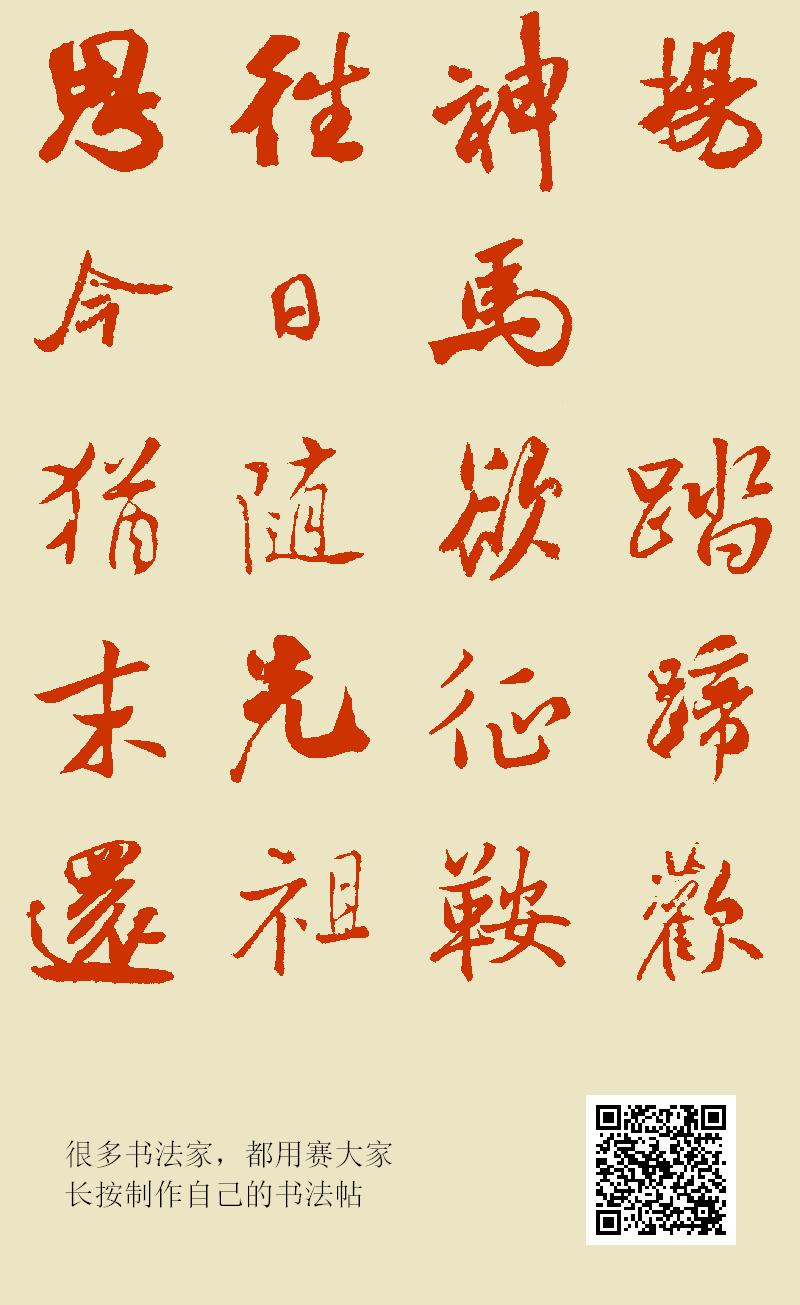 揚踏蹄歡
神馬欲征鞍
往日随先祖
思今猶末還
很多书法家，都用赛大家
长按制作自己的书法帖